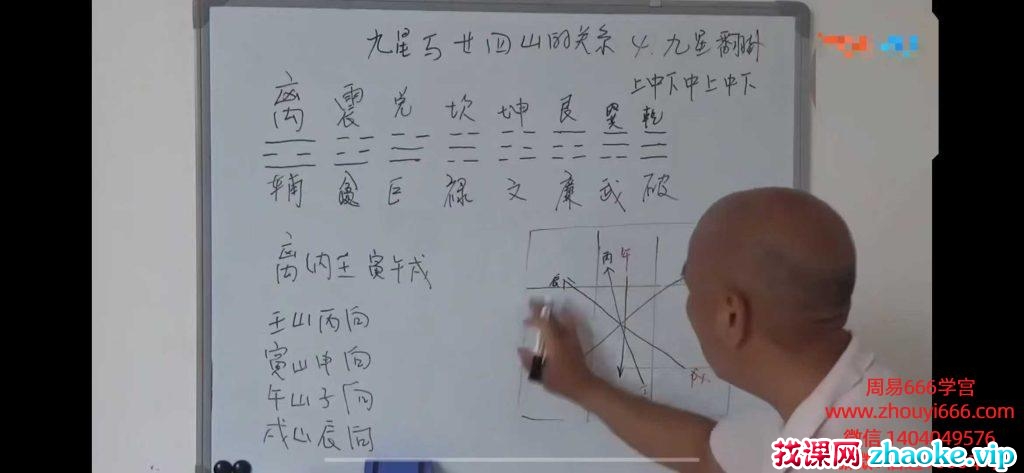 九星与廿四山的关系 4. 九星翻卦
上中下中上中下
离 震 兑 坎 坤 艮 巽 乾
辅 贪 巨 禄 文 廉 武 破
离纳壬寅午戌
壬山丙向
寅山申向
午山子向
戌山辰向
丙 午
辰
戌
周易666学宫
www.zhouyi666.com
微信1404049576
找课网 zhaoke.vip